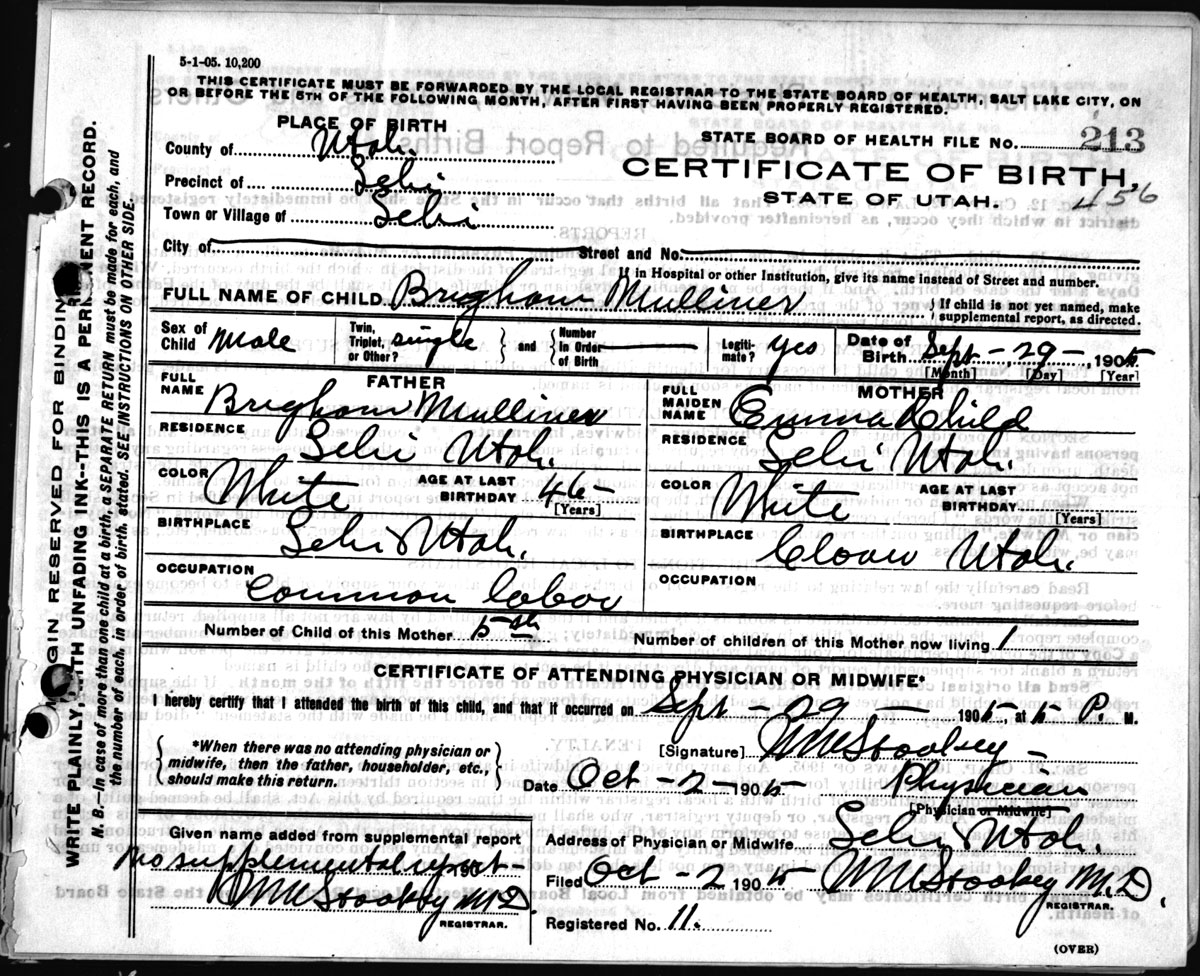 5-1-05. 10,200
THIS CERTIFICATE MUST BE FORWARDED BY THE LOCAL REGISTRAR TO THE STATE BOARD OF HEALTH, SALT LAKE CITY, ON
OR BEFORE THE 5TH OF THE FOLLOWING MONTH, AFTER FIRST HAVING BEEN PROPERLY REGISTERED.
PLACE OF BIRTH
STATE BOARD OF HEALTH FILE NO. 213
County of Utah.
CERTIFICATE OF BIRTH
Precinct of Lehi
STATE OF UTAH. 456
Town or Village of Lehi
City of Street and No.
If in Hospital or other Institution, give its name instead of Street and number.
FULL NAME OF CHILD Brigham Mulliner
If child is not yet named, make
supplemental report, as directed.
Sex of Child Male Twin, Triplet, or Other? single and Number In Order of Birth Legiti-mate? yes Date of Birth Sept - 29 - 1905
[Month] [Day] [Year]
FATHER MOTHER
FULL NAME Brigham Mulliner FULL MAIDEN NAME Emma Child
RESIDENCE Lehi Utah. RESIDENCE Lehi Utah.
COLOR White AGE AT LAST BIRTHDAY 45 [Years] COLOR White AGE AT LAST BIRTHDAY [Years]
BIRTHPLACE Lehi Utah. BIRTHPLACE Utah.
OCCUPATION Common labor OCCUPATION
Number of Child of this Mother 5th Number of children of this Mother now living 1
CERTIFICATE OF ATTENDING PHYSICIAN OR MIDWIFE*
I hereby certify that I attended the birth of this child, and that it occurred on Sept 29 1905, at 5 P. M.
*When there was no attending physician or
midwife, then the father, householder, etc.,
should make this return.
[Signature] WM Stookey -
Date Oct - 2 - 1905 Physician
[Physician or Midwife]
Given name added from supplemental report
no supplemental report - 190
WM Stookey M.D.
REGISTRAR.
Address of Physician or Midwife. Lehi Utah.
Filed Oct - 2 1905 WM Stookey M.D.
REGISTRAR.
Registered No. 11.
(OVER)
MARGIN RESERVED FOR BINDING
WRITE PLAINLY, WITH UNFADING INK--THIS IS A PERMANENT RECORD.
N. B. In case of more than one child at a birth, a SEPARATE RETURN must be made for each, and
the number of each, in order of birth, stated. SEE INSTRUCTIONS ON OTHER SIDE.